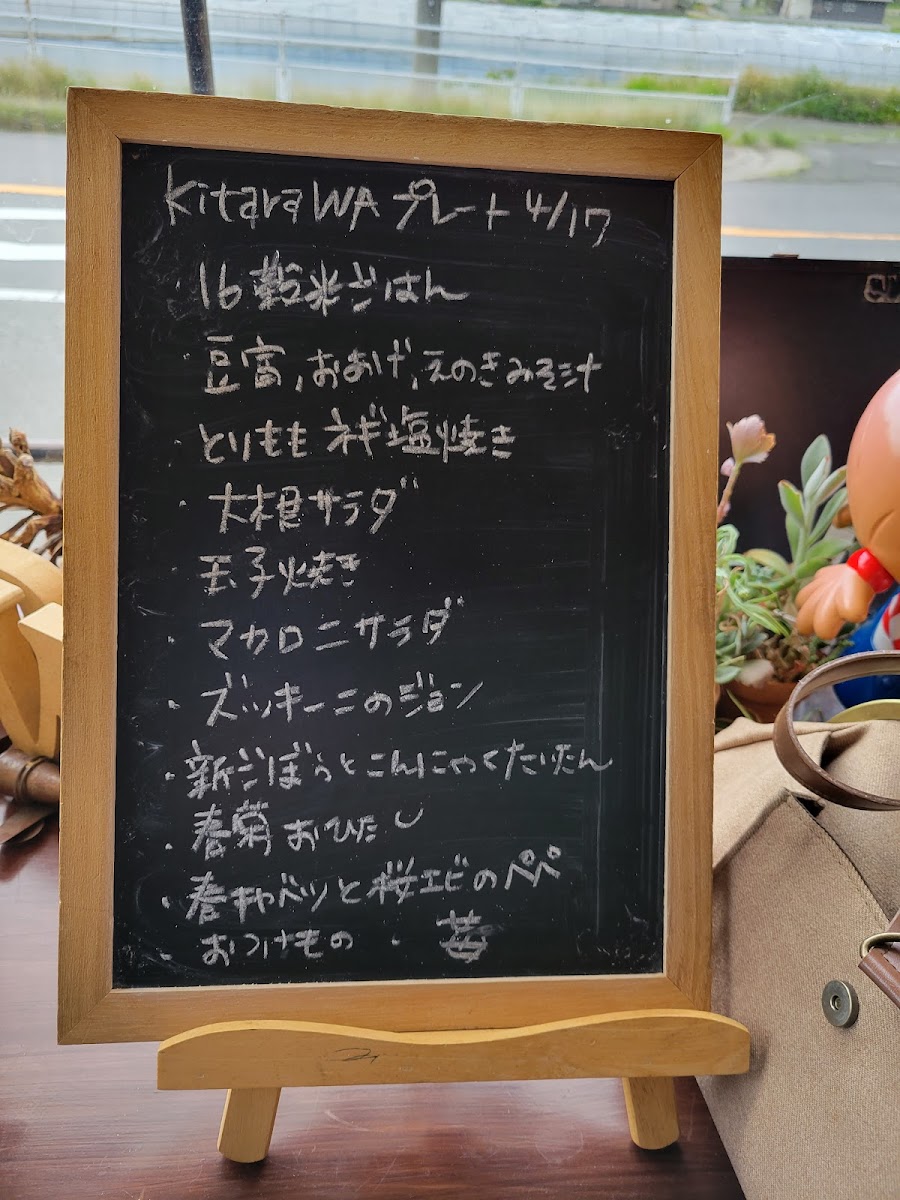 Kitara WA プレート 4/17
・16穀米ごはん
・豆富,おあげ,えのきみそ汁
・とりもも ネギ塩焼き
・大根サラダ
玉子焼き
・マカロニサラダ
・ズッキーニのジョン
・新ごぼうとこんにゃくたいたん
・春菊おひたし
・春キャベツと桜エビのペペ
・おつけもの ・苺